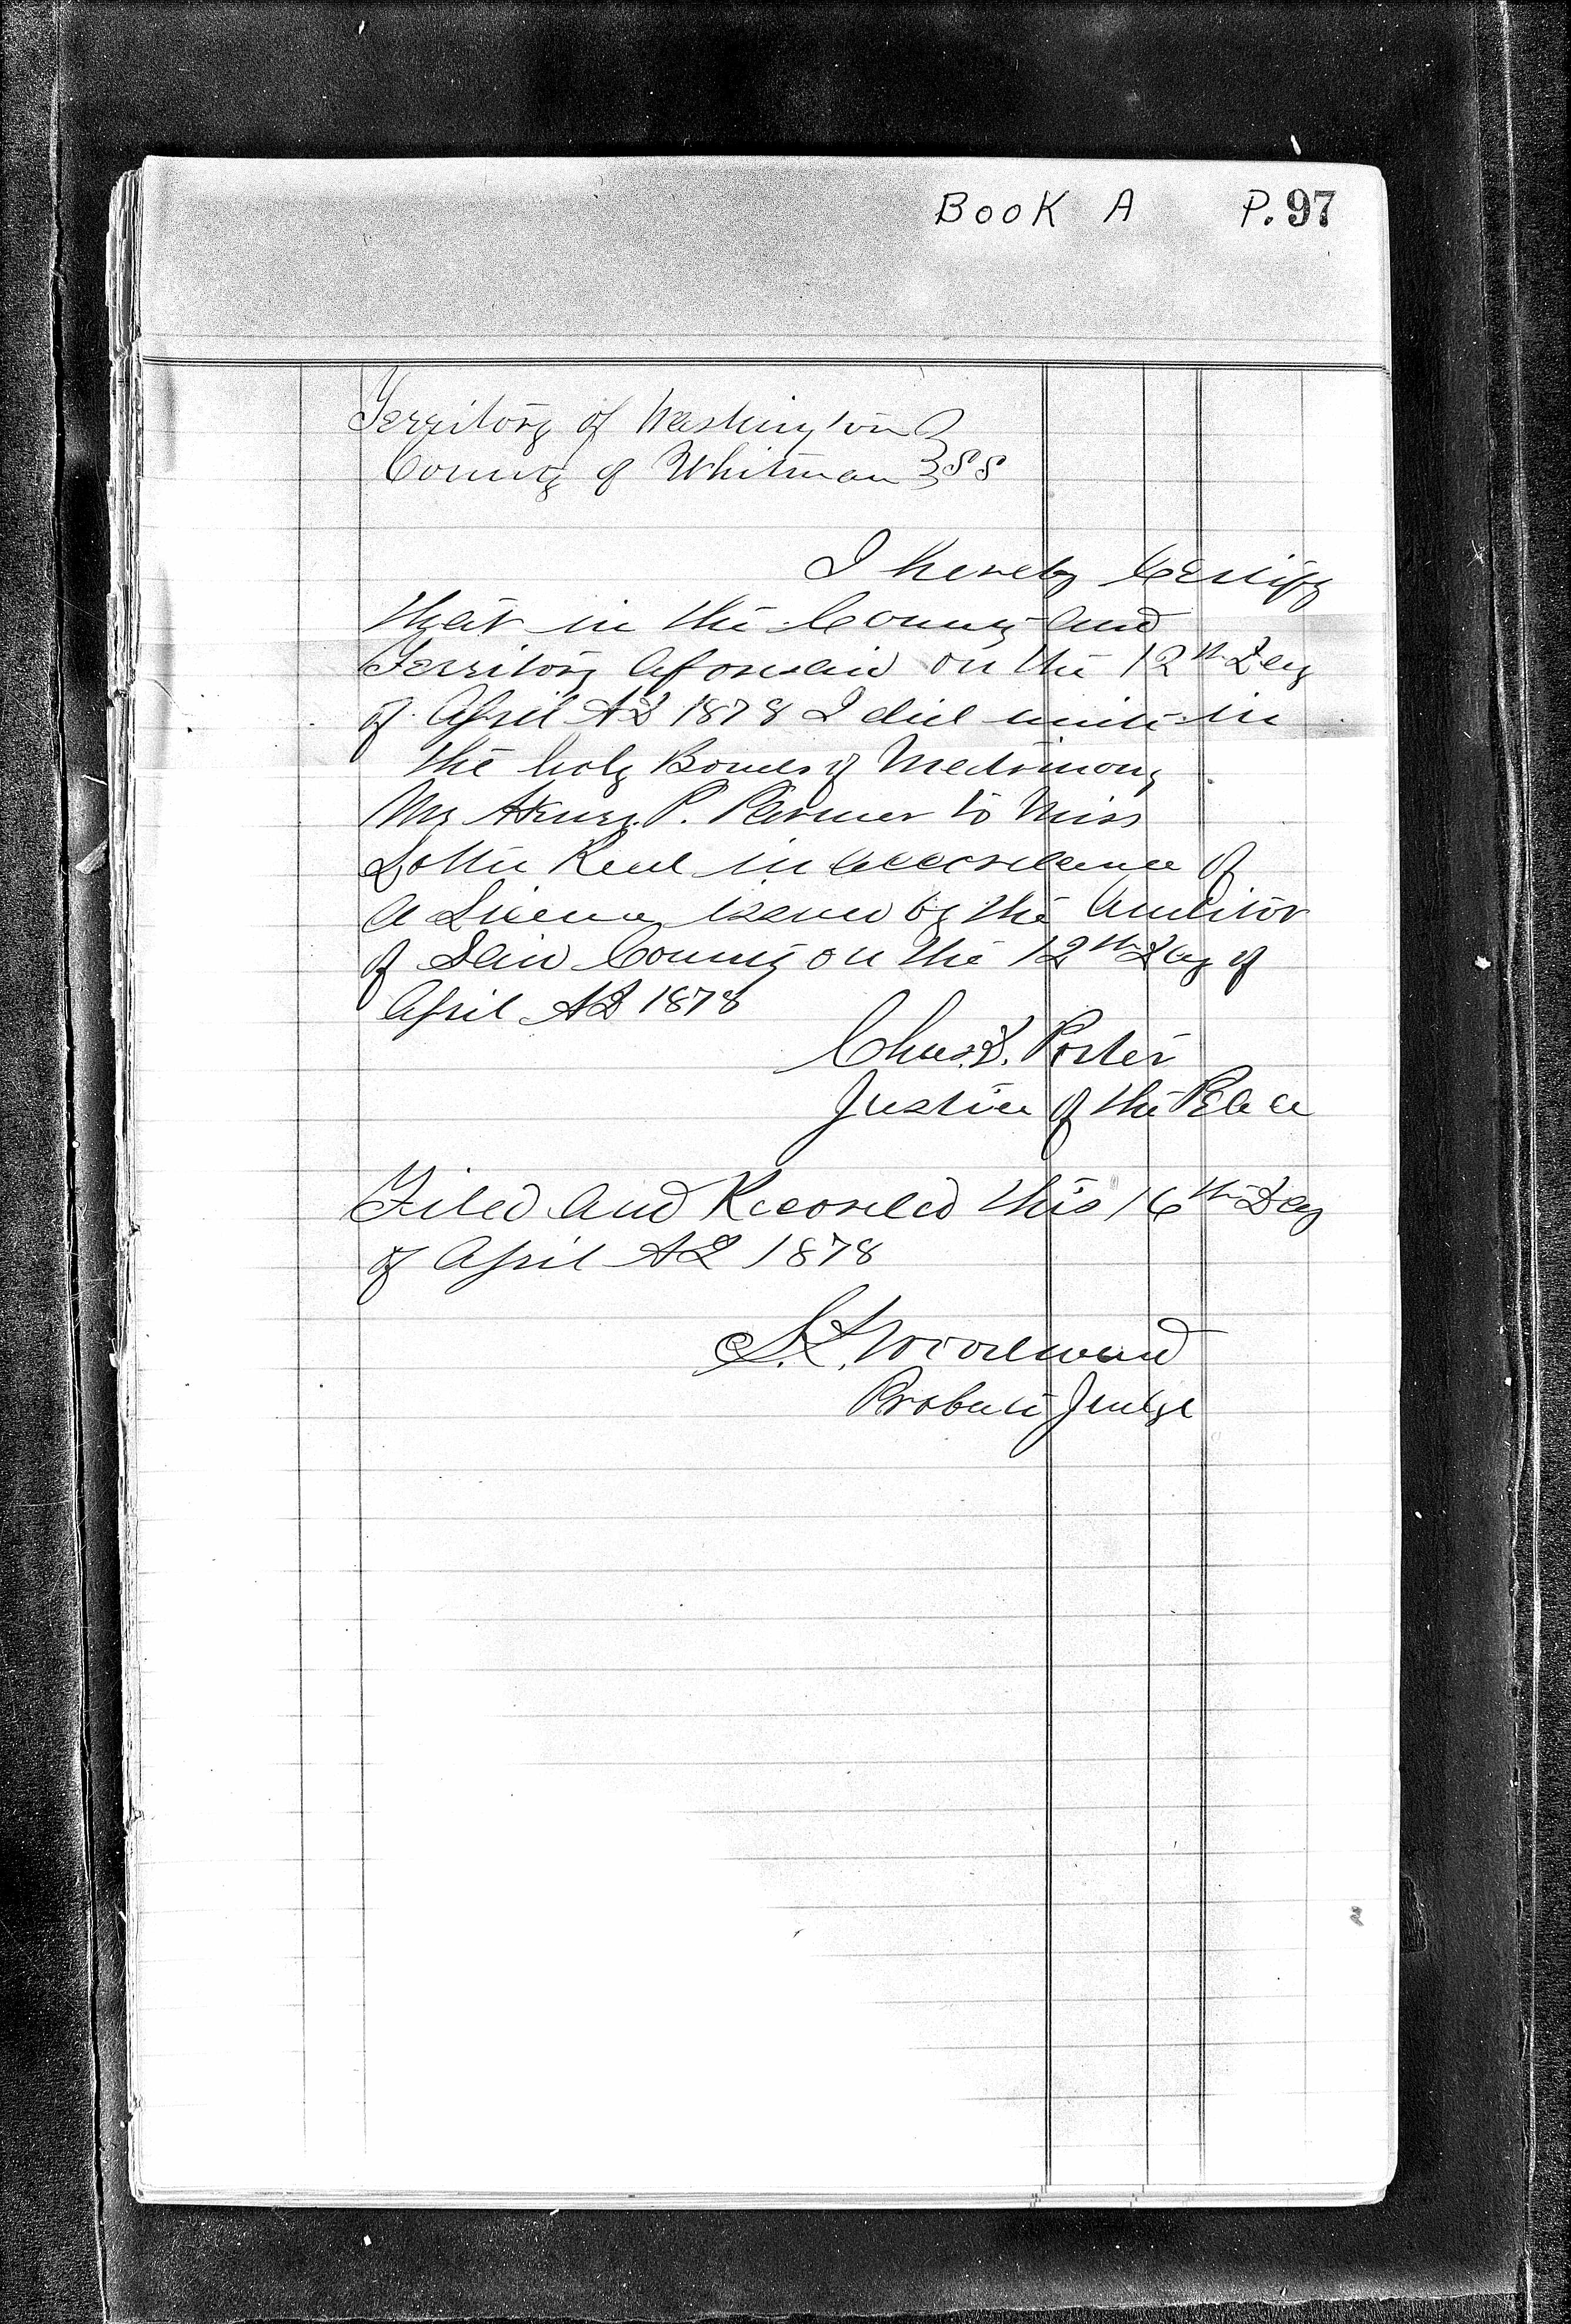 Book A P. 97
Territory of Washington }
County of Whitman } SS
I hereby Certify
that in the County and
Territory aforesaid on the 12th Day
of April AD 1878 I did unite in
the holy Bonds of Matrimony
Mr Henry P. Farmer to Miss
Lottie in accordance of
a License issued by the Auditor
of Said County on the 12th Day of
April AD 1878
Chas. D. Porter
Justice of the Peace
Filed and Recorded this 16th Day
of April AD 1878
S. L. Woodward
Probate Judge